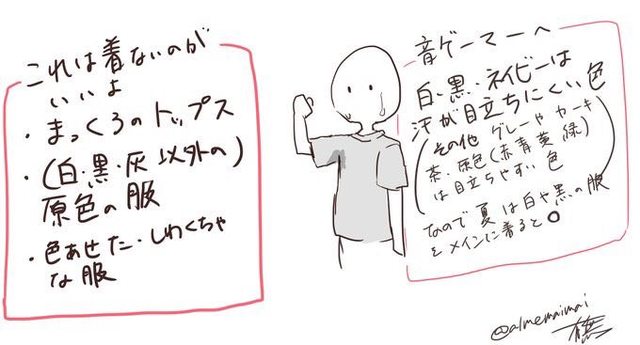 これは着ないのが
いいよ
・まっくろのトップス
・(白・黒・灰以外の)
原色の服
・色あせた・しわくちゃ
な服
音ゲーマーへ
白・黒・ネイビーは
汗が目立ちにくい色
(その他 グレーや カーキ
茶・原色(赤青黄緑)
は目立ちやすい色)
なので夏は白や黒の服
をメインに着ると○
@almemaimai